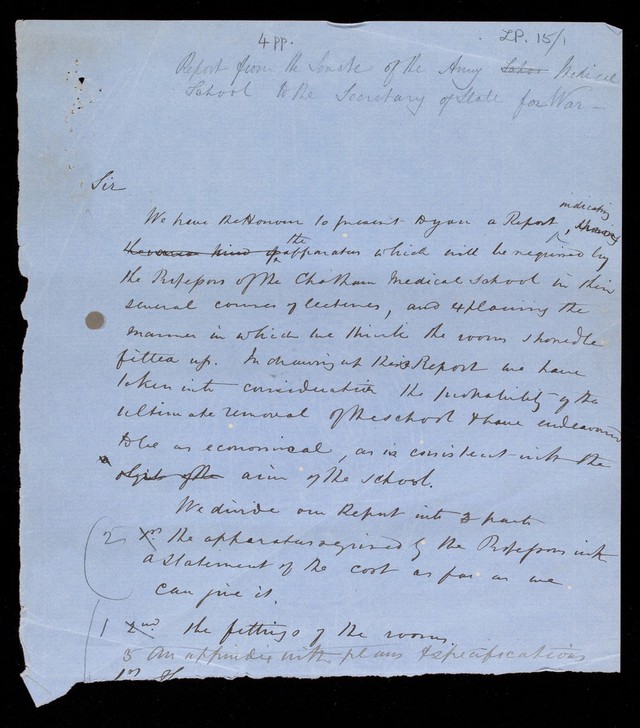 4 pp.
LP. 15/1
Report from the Senate of the Army Schoo Medical
School to the Secretary of State for War —
Sir
We have the Honour to present to you a Report, indicating
the various kind of the apparatus which will be required by
the Professors of the Chatham Medical School in their
several courses of lectures, and explaining the
manner in which we think the rooms should be
fitted up. In drawing up this Report we have
taken into consideration the probability of the
ultimate removal of the school & have endeavoured
to be as economical, as is consistent with the
objects of the aim of the school.
We divide our Report into 3 parts
2 1st the apparatus required by the Professors with
a statement of the cost as far as we
can give it.
1 2nd. the fittings of the rooms.
3 An appendix with plans & specifications